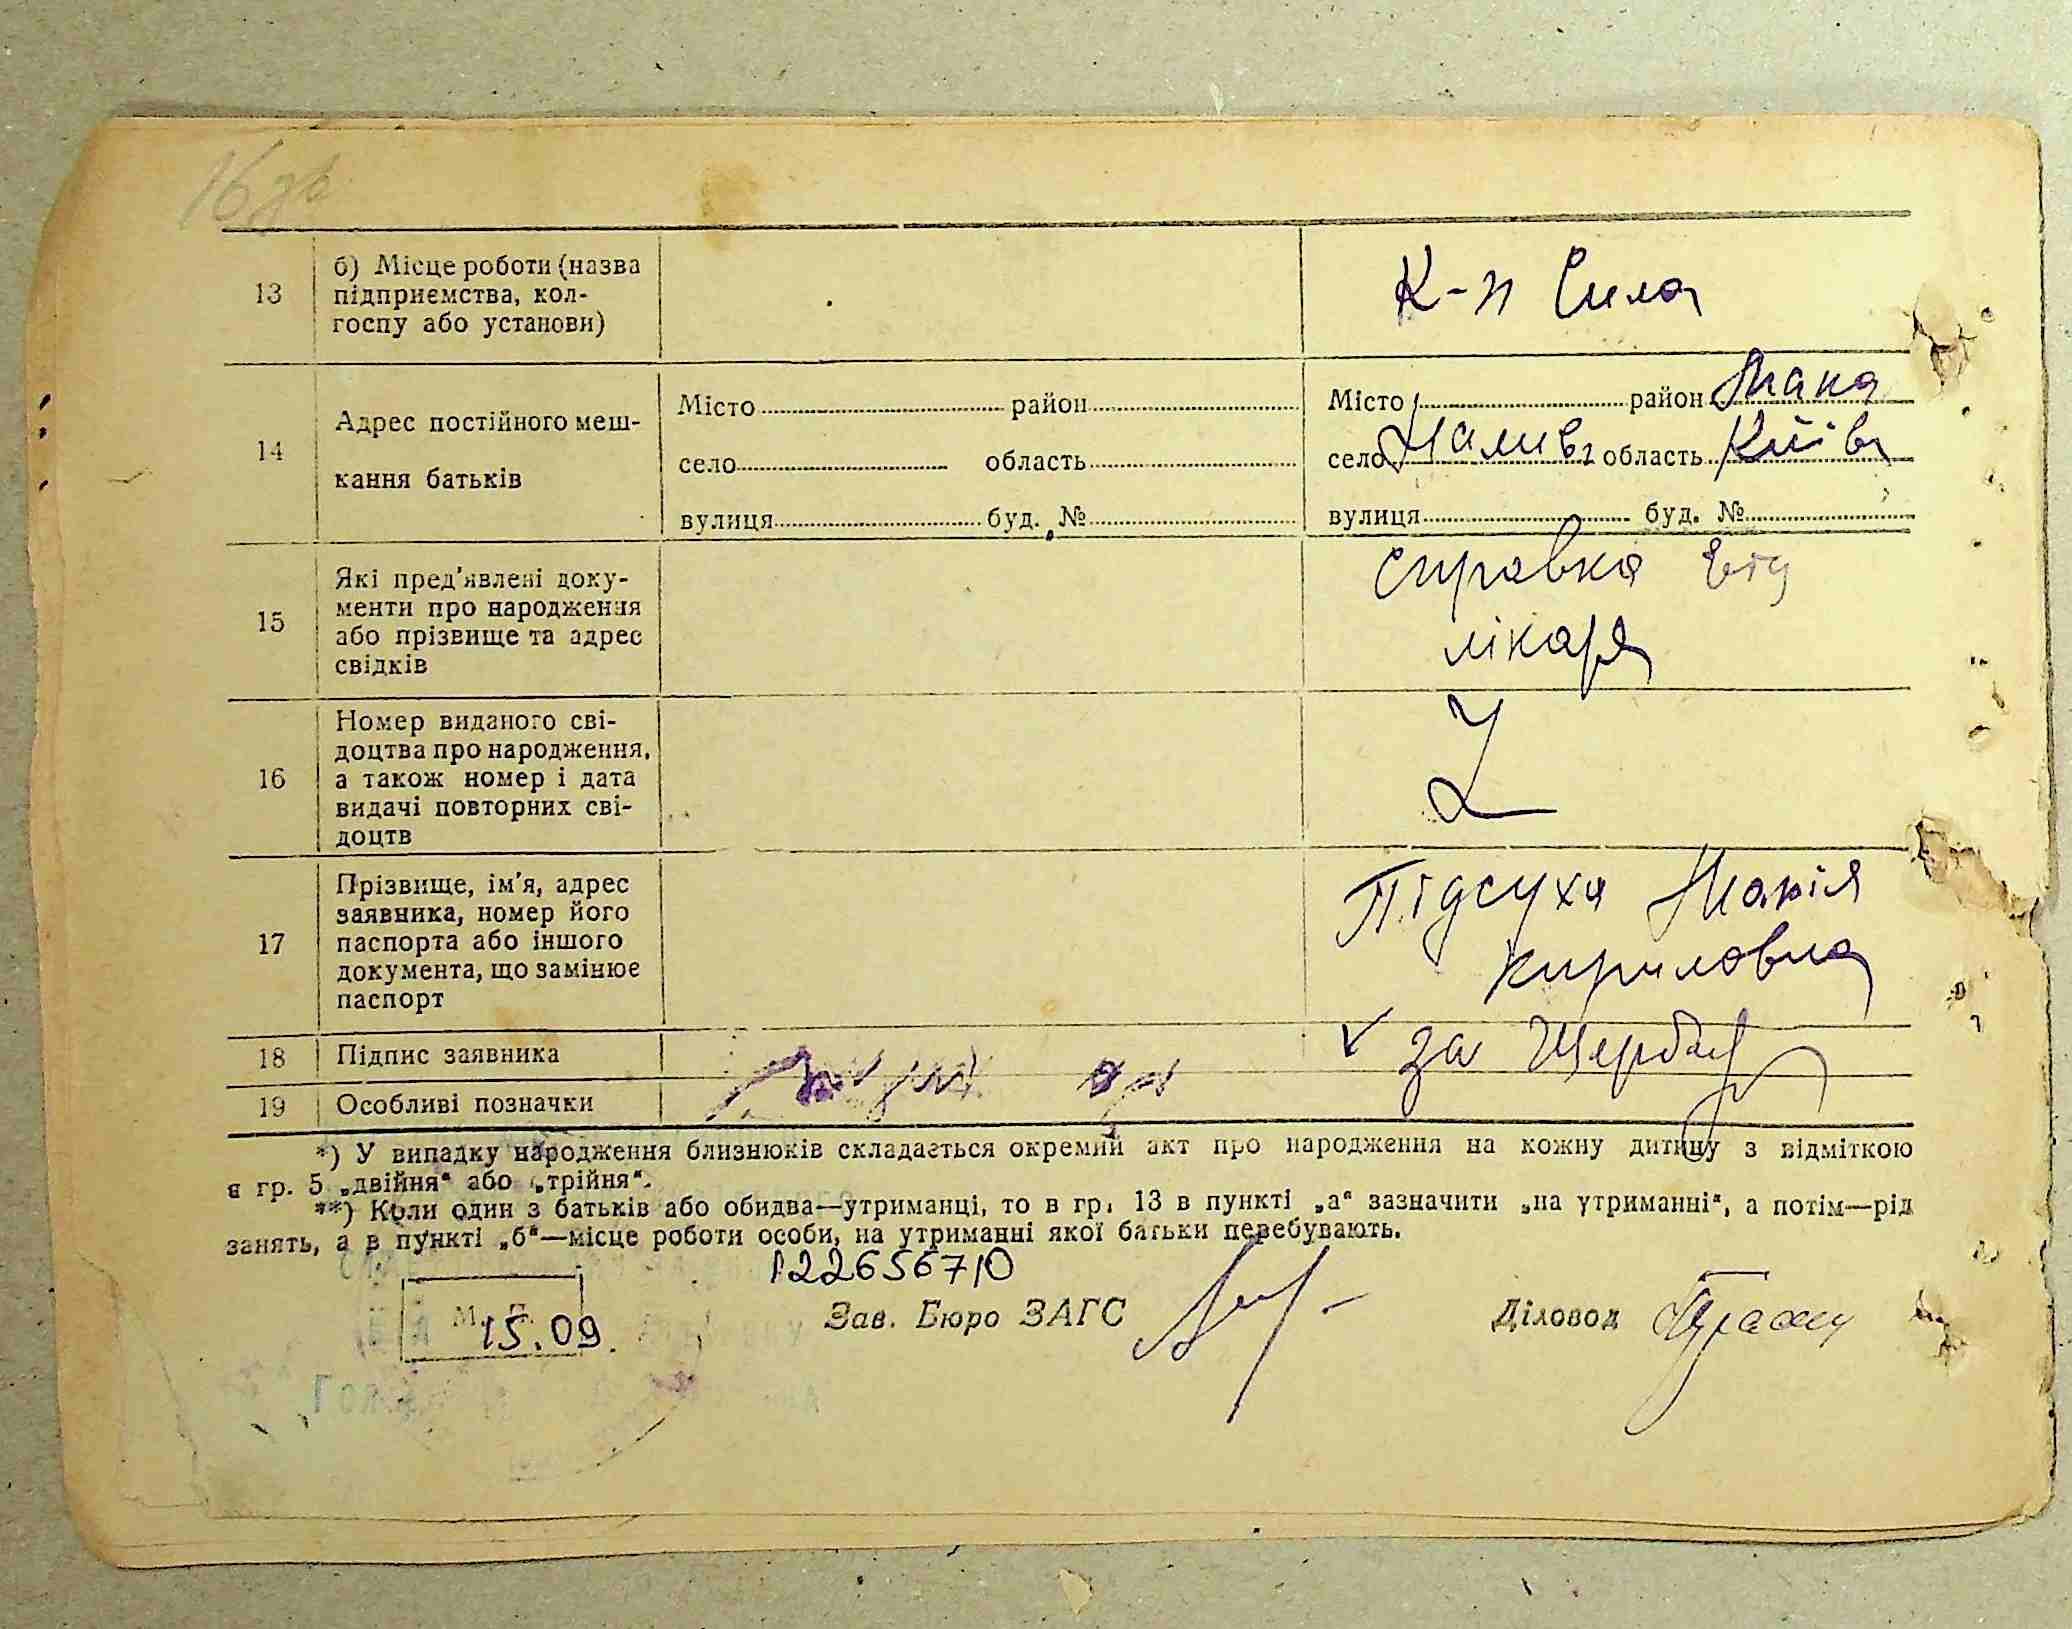 16 зв
13
б) Місце роботи (назва
підприємства, кол-
госпу або установи)
К-п Сила
14
Адрес постійного меш-
кання батьків
Місто район
село область
вулиця буд. №
Місто район Мака
село область Київ
вулиця буд. №
15
Які пред'явлені доку-
менти про народження
або прізвище та адрес
свідків
справка від
лікаря
16
Номер виданого сві-
доцтва про народження,
а також номер і дата
видачі повторних сві-
доцтв
17
Прізвище, ім'я, адрес
заявника, номер його
паспорта або іншого
документа, що замінює
паспорт
Підсуха Марія
Кириловна
18
Підпис заявника
за Щерба
19
Особливі позначки
*) У випадку народження близнюків складається окремий акт про народження на кожну дитину з відміткою
в гр. 5 „двійня“ або „трійня“.
**) Коли один з батьків або обидва—утриманці, то в гр. 13 в пункті „а“ зазначити „на утриманні“, а потім—рід
занять, а в пункті „б“—місце роботи особи, на утриманні якої батьки перебувають.
М. П.
15.09.
Зав. Бюро ЗАГС
Діловод